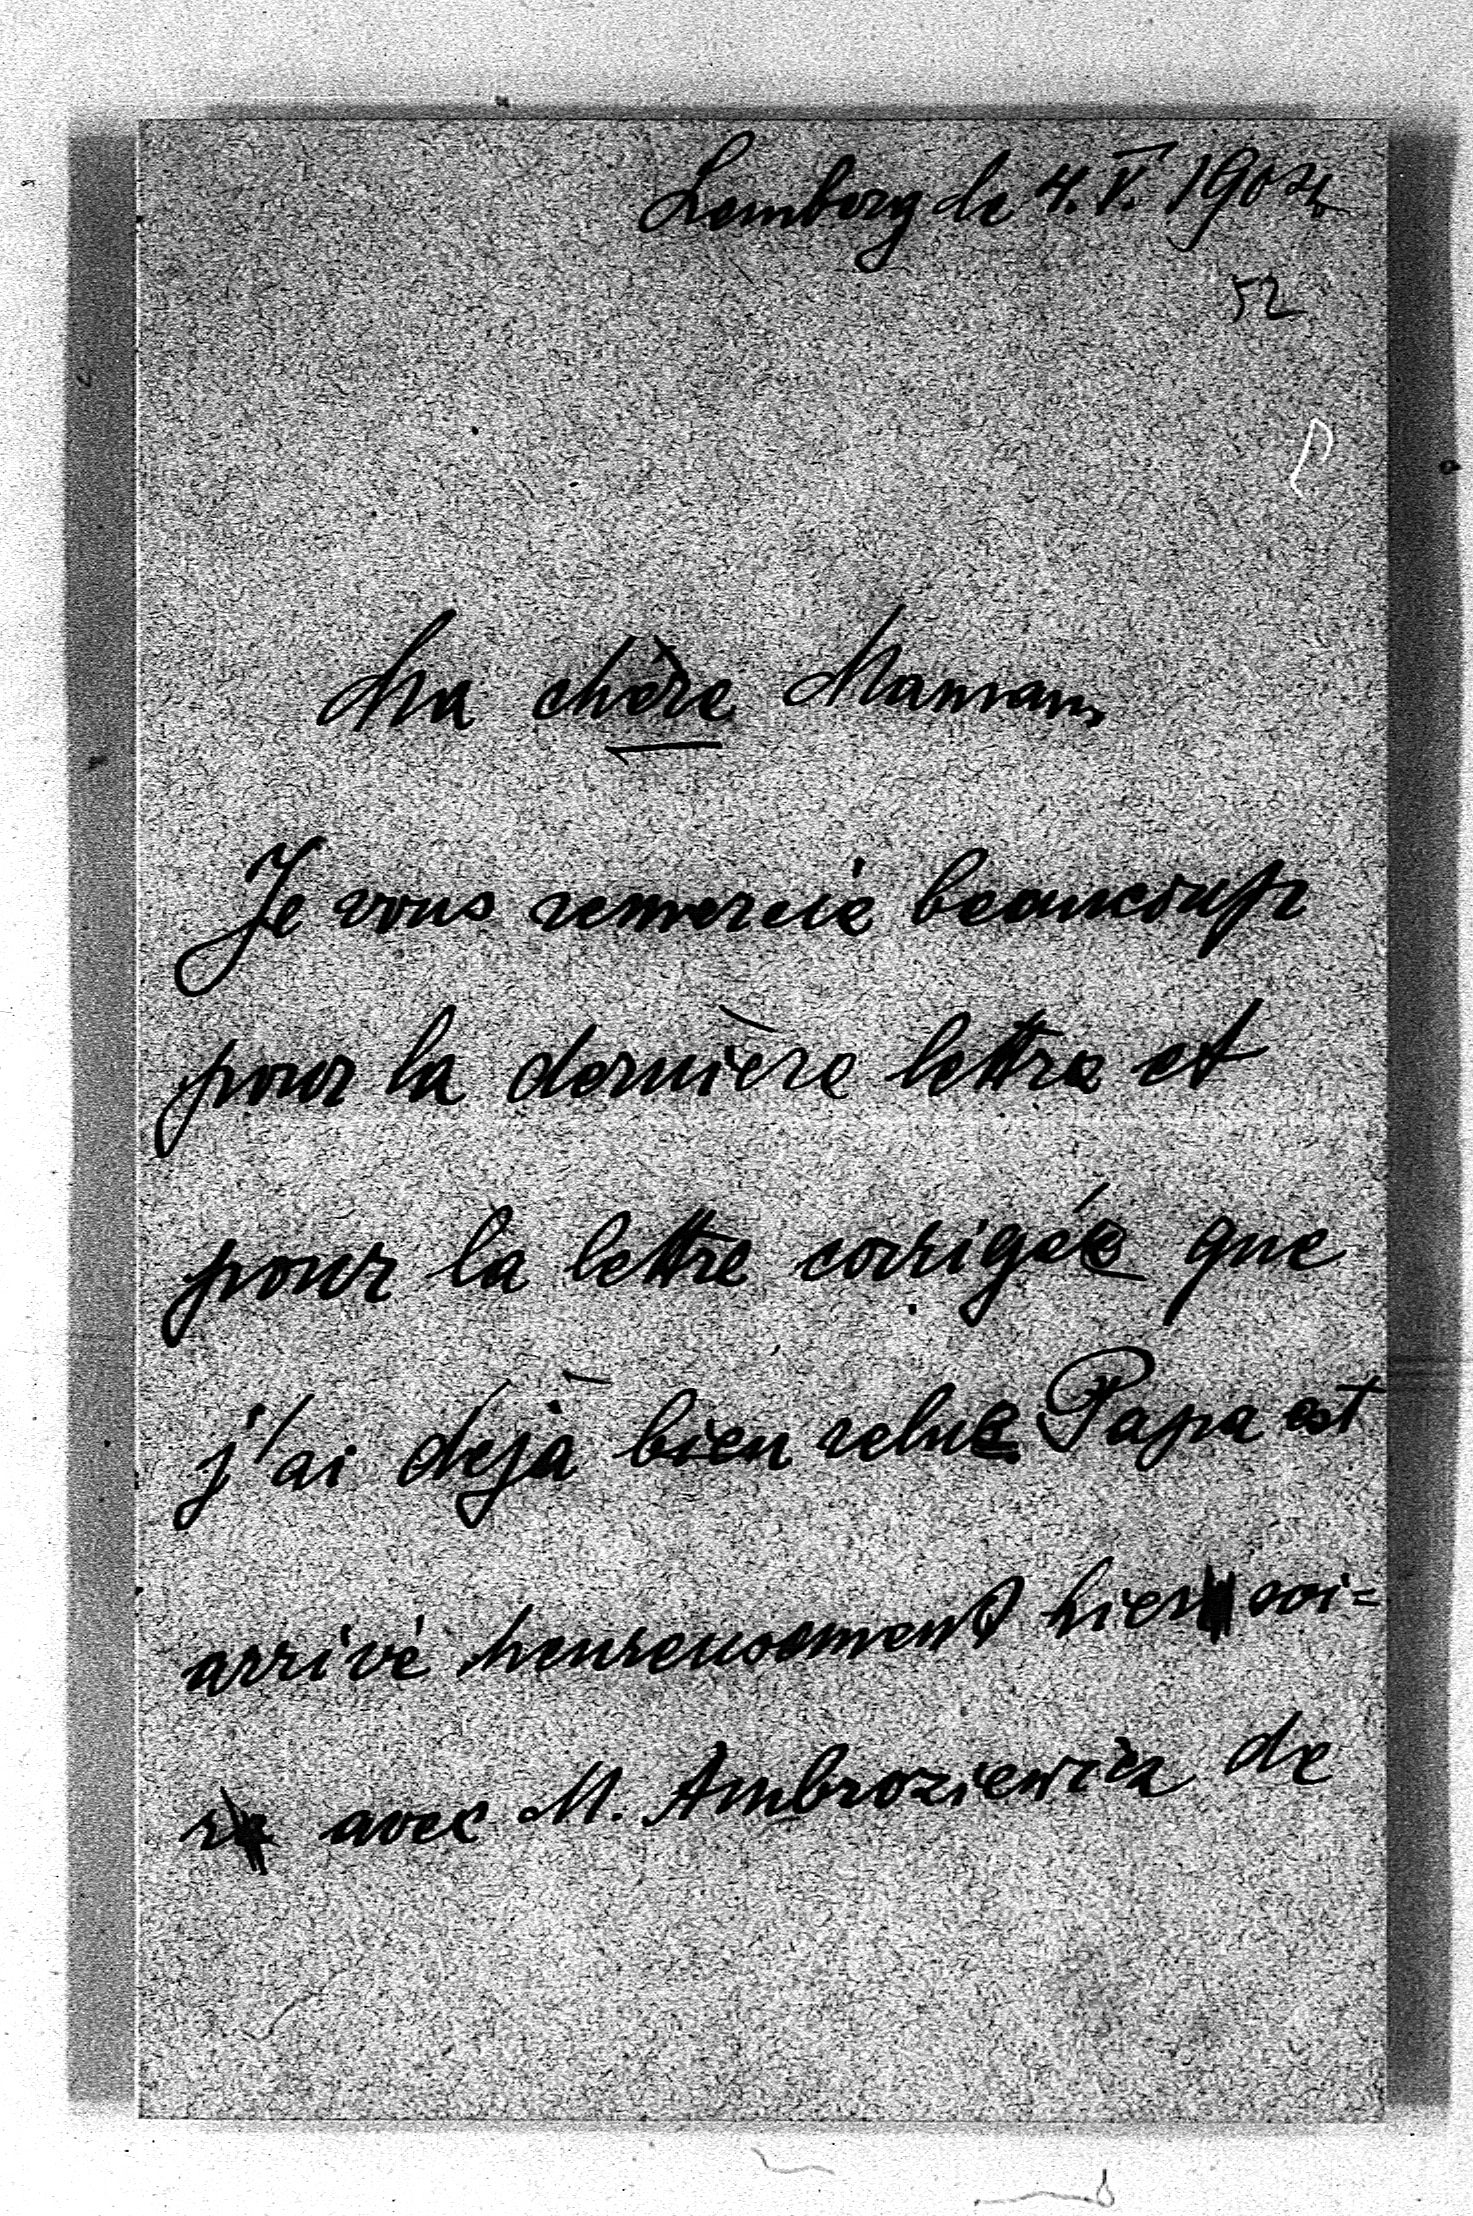 Lemberg le 4. V. 1904
52
Ma chère Maman,
Je vous remercie beaucoup
pour la dernière lettre et
pour la lettre corrigée que
j'ai dejà bien relue Papa est
arrivé heureusement hier soi=
r avec M. Ambroziewicz de